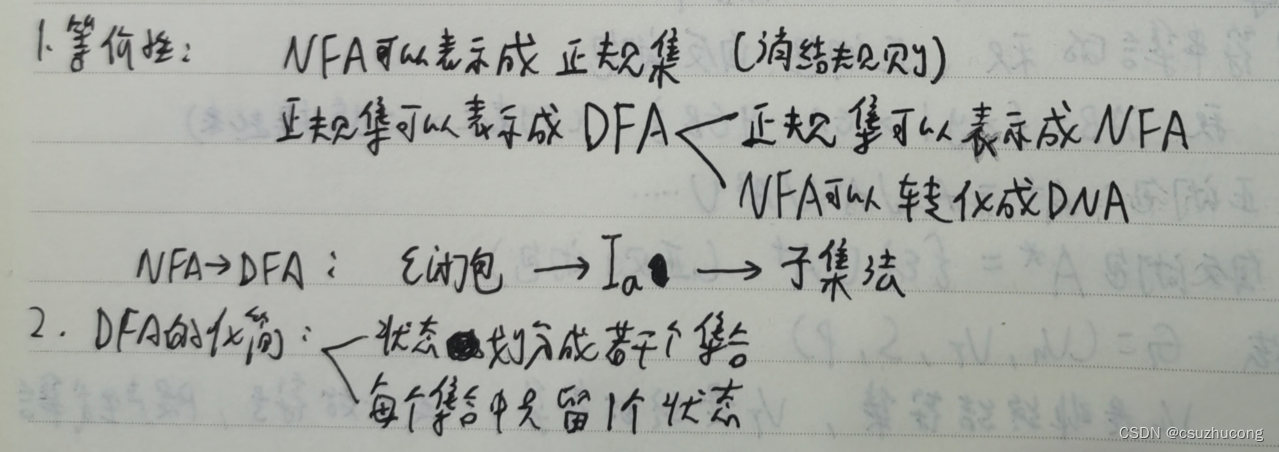 1. 等价性: NFA可以表示成 正规集 (消结规则)
正规集可以表示成 DFA 正规集可以表示成NFA
NFA可以转化成DNA
NFA→DFA: ε闭包 → Ia → 子集法
2. DFA的化简: 状态划分成若干个集合
每个集合中只留1个状态
CSDN @csuzhucong